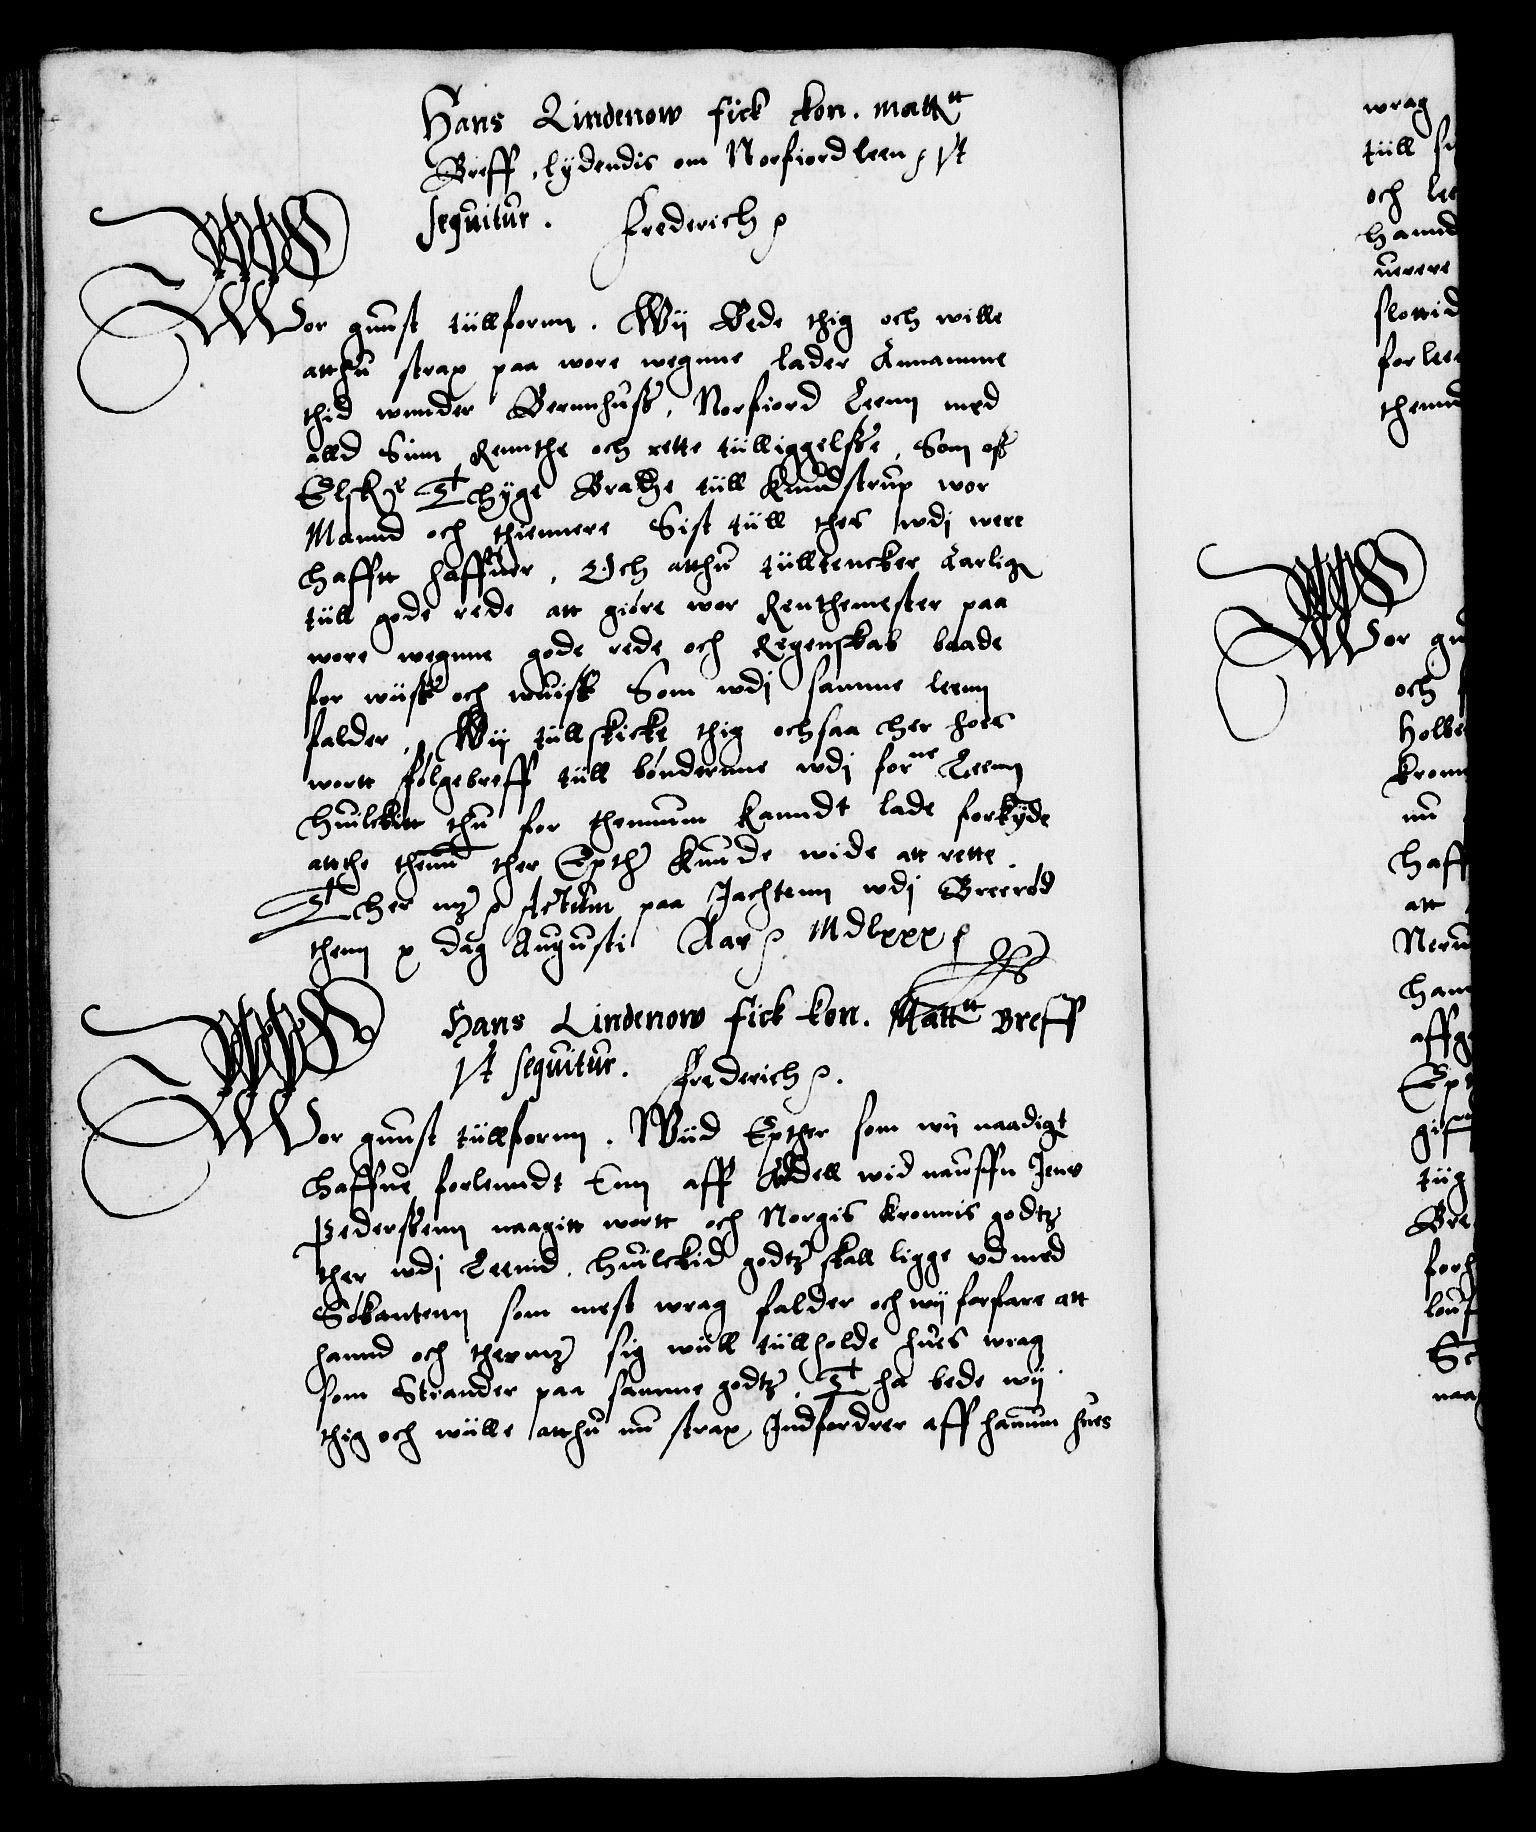 Hans Lindenow fick kon. Matt tt
Breff, lydendis om Norfiord leen, Vt
sequitur. Frederich
Wor gunst tiillfornn. Wij Bede thig och wille
atthu strax paa wore wegnne lader Annamme
thid wnnder Bernnhuss, Norfiord Leenn med
alld Sinn Rennthe och rette tiilliggelsse, Som oss
Elske Thyge Brahe tiill Knudstrup wor
Mannd och thiennere Sist tiill thes wdj were
hafftt haffuer, Och atthu tiilltencker Aarlig
tiill gode rede att giöre wor Renthemester paa
wore wegnne gode rede och Regenskab baade
for wiist och wuist Som wdj samme leenn
falder, Wij tiillskicke thig ochsaa her hoes
wortt fölgebreff tiill böndernne wdj for ne Leenn
huilckitt thu for thennum kanndt lade forkynde
atthe thennd ther Epther Kunde wide att rette.
Ther mz Actum paa Jachtenn wdj Breeröd
thenn x dag Augusti Aar MDlxxx
Hans Lindenow fick kon. Matt tt Breff
Vt sequitur. Frederich
Wor gunst tiillfornn. Wiid Epther som wij naadigt
haffue forlenndt Enn aff Adell wid naffn Jens
Pederssenn naagitt wortt och Norgis Kronnis godtz
ther wdj Leenid, huilckid godtz skall ligge vd med
Sökantenn som mest wrag falder och wij forfare att
hannd och thermz sig wiill tiillholde hues wrag
som Strander paa samme godtz, Tha bede wij
thig och wiille atthu nu strax Indfordrer aff hanum hues
wrag
tiill
och
hannd
uerere
slottid
forlee
thennd
Wor
och
Holbe
kron
nu
haff
att
Neru
han
aff
Ept
tiig
Bre
forh
naa